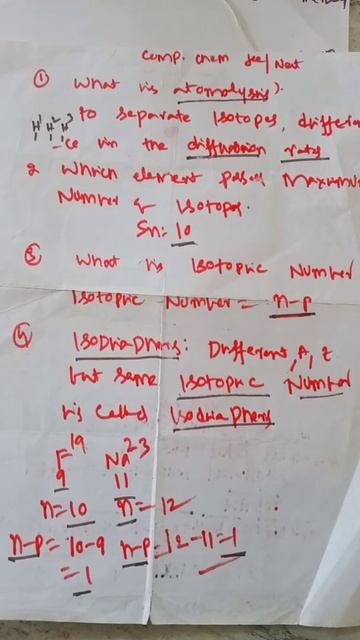 Comp. chem Jee/Neet
① What is atomolysis).
H¹ H² H³ to separate Isotopes, differen
ce in the diffusion rates
2 Which element posses Maximum
Number of Isotopes.
Sn: 10
③ What is Isotopic Number
Isotopic Number = n-p
④ IsoDiaphers: Different, A, Z
but same Isotopic Number
is called IsoDiaphers
F¹⁹ Na²³
9 11
n=10 n=12
n-p=10-9 n-p=12-11=1
=1